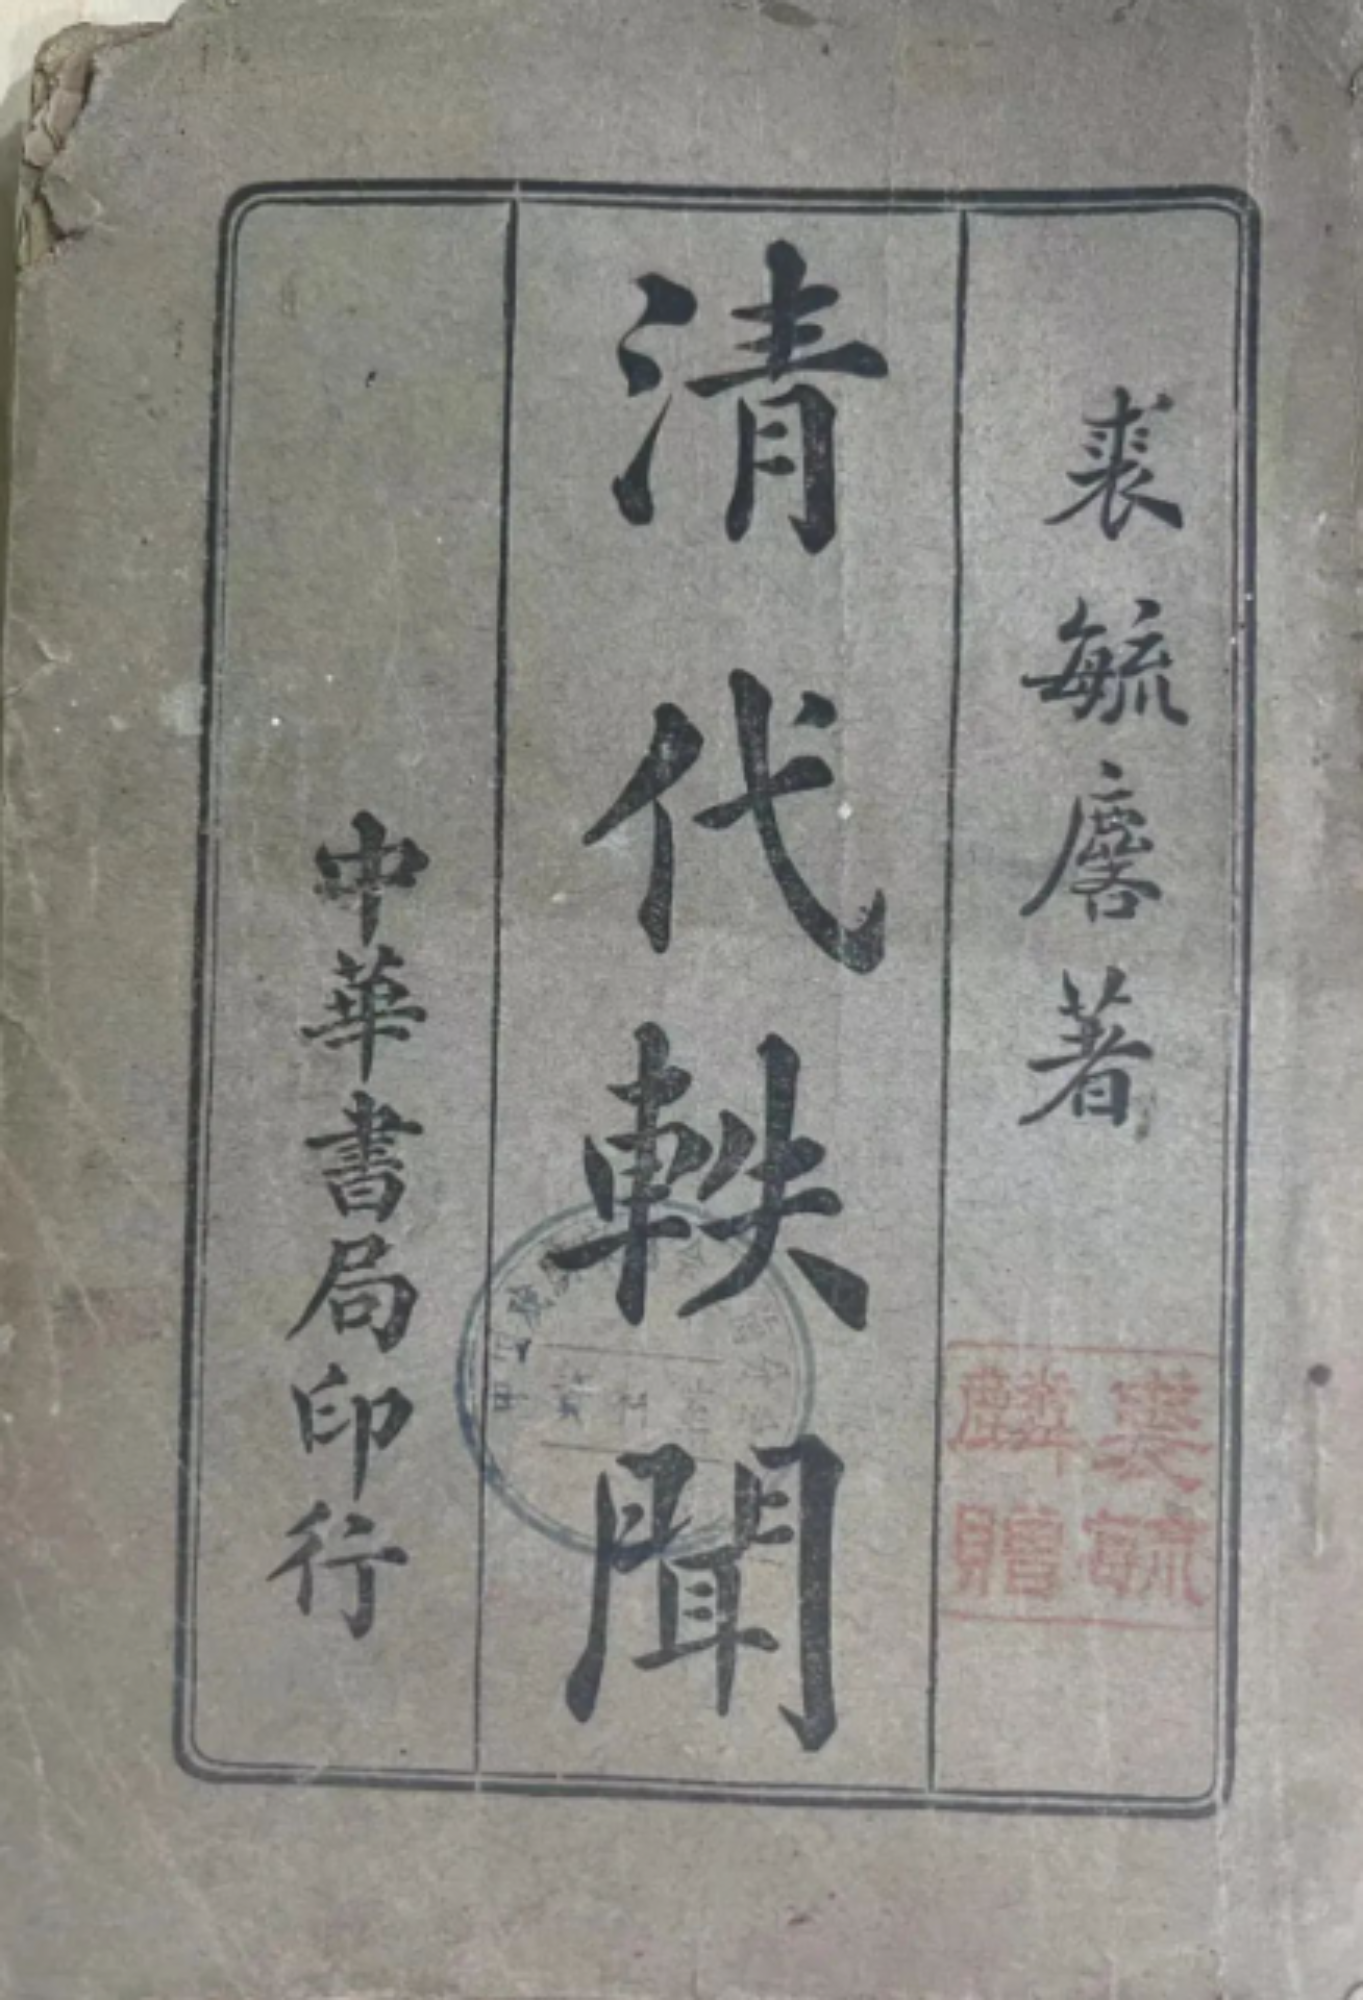 裘毓麐著
裘毓
麟贈
清代軼聞
中華書局印行